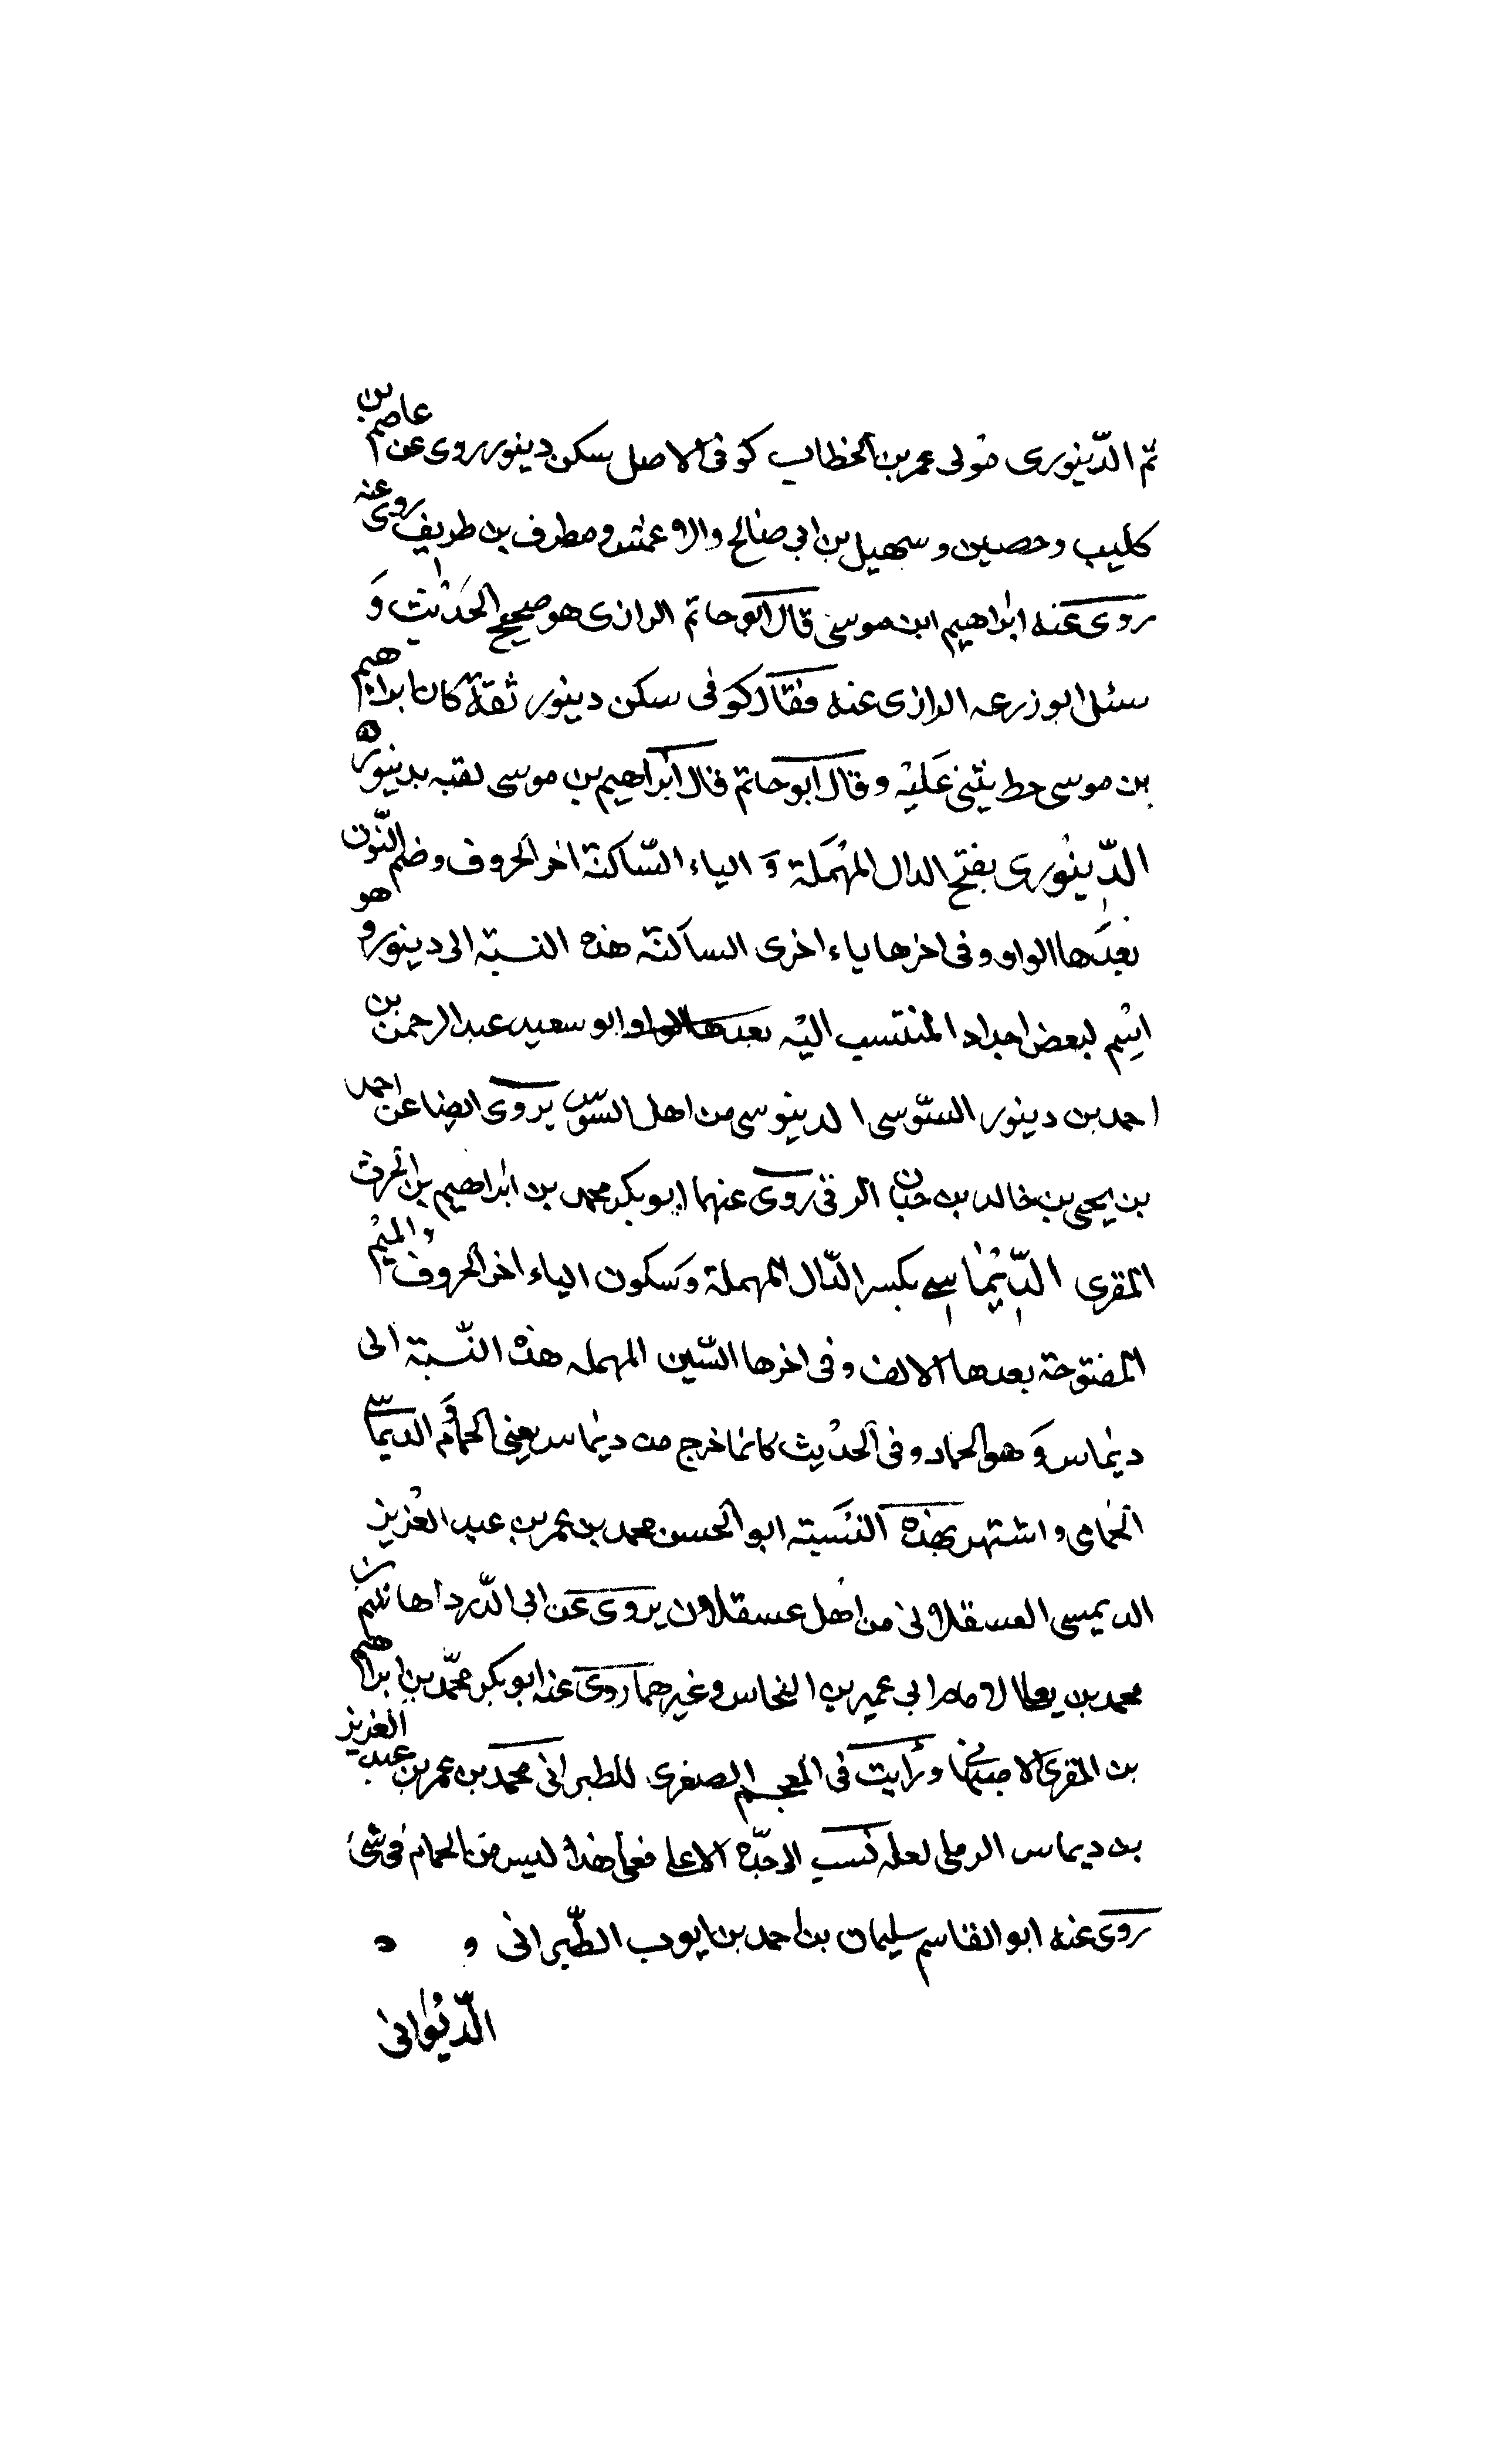 ثم الدّينورى مولى عمر بن الخطاب كوفى الاصل سكن دينور روى عن عاصم بن
كليب وحصين وسهيل بن ابى صالح والاعمش ومطرف بن طريف روى عنه
روى عنه ابراهيم ابن موسى قال ابو حاتم الرازى هو صحيح الحديث وَ
سئل ابو زرعه الرازى عنه فقال كوفى سكن دينور ثقة كان ابراهيم
بن موسى يثنى عَليْه وقال ابو حاتم قال ابراهيم بن موسى لقبه بدينور ه
الدِّينوُرى بفتح الدال المهْمَلة وَ الياء السّاكنة اخر الحروف وضم النّون
بعدَها الواو وفى اخرها ياء اخرى الساكنة هذه النسبة الى دينور وهو
اسْم لبعض اجداد المنتسب اليْه بعدها الواو ابو سعيد عبد الرحمن بن
احمد بن دينور السّوسى الدينوسى من اهل السوس يروى ايضا عن احمد
بن يحيى بن خالد بن حبان الرقى روى عنهما ابو بكر محمد بن ابراهيم بن الحرث
المقرى الدِّيْمَاسِى بكسر الدّال المهملة وَسكون الياء اخر الحروف والميْم
المفتوحة بعدها الالف وفى اخرها السّين المهمله هذه النّسبة الى
ديماس وَ هو الحمام وفى الحدْيث كانما خرج من ديماس يعنى الحمام الديماسى
الحمامى واشتهر بهذه النسَّبة ابو الحسن محمد بن عمر بن عبد العزيز
الديمسى العسقلانى من اهْل عسقلان يروى عن ابى الدّرداء هاشم بن
محمد بن يعلا الامام ابى عمير بن النحاس وغيرهما روى عنه ابو بكر محمّد بن ابراهيم
بن المقرى الاصبهانى ورَايت فى المعجم الصغرى للطبرانى محمد بن عمر بن عبد العزيز
بن ديماس الرملى لعله نسب الى جدّه الاعلى فعلى هذا ليس من الحمام فى شئ
روى عنه ابو القاسم سليمان بن احمد بن ايوب الطّبرانى و ه
الدِّيْوانى